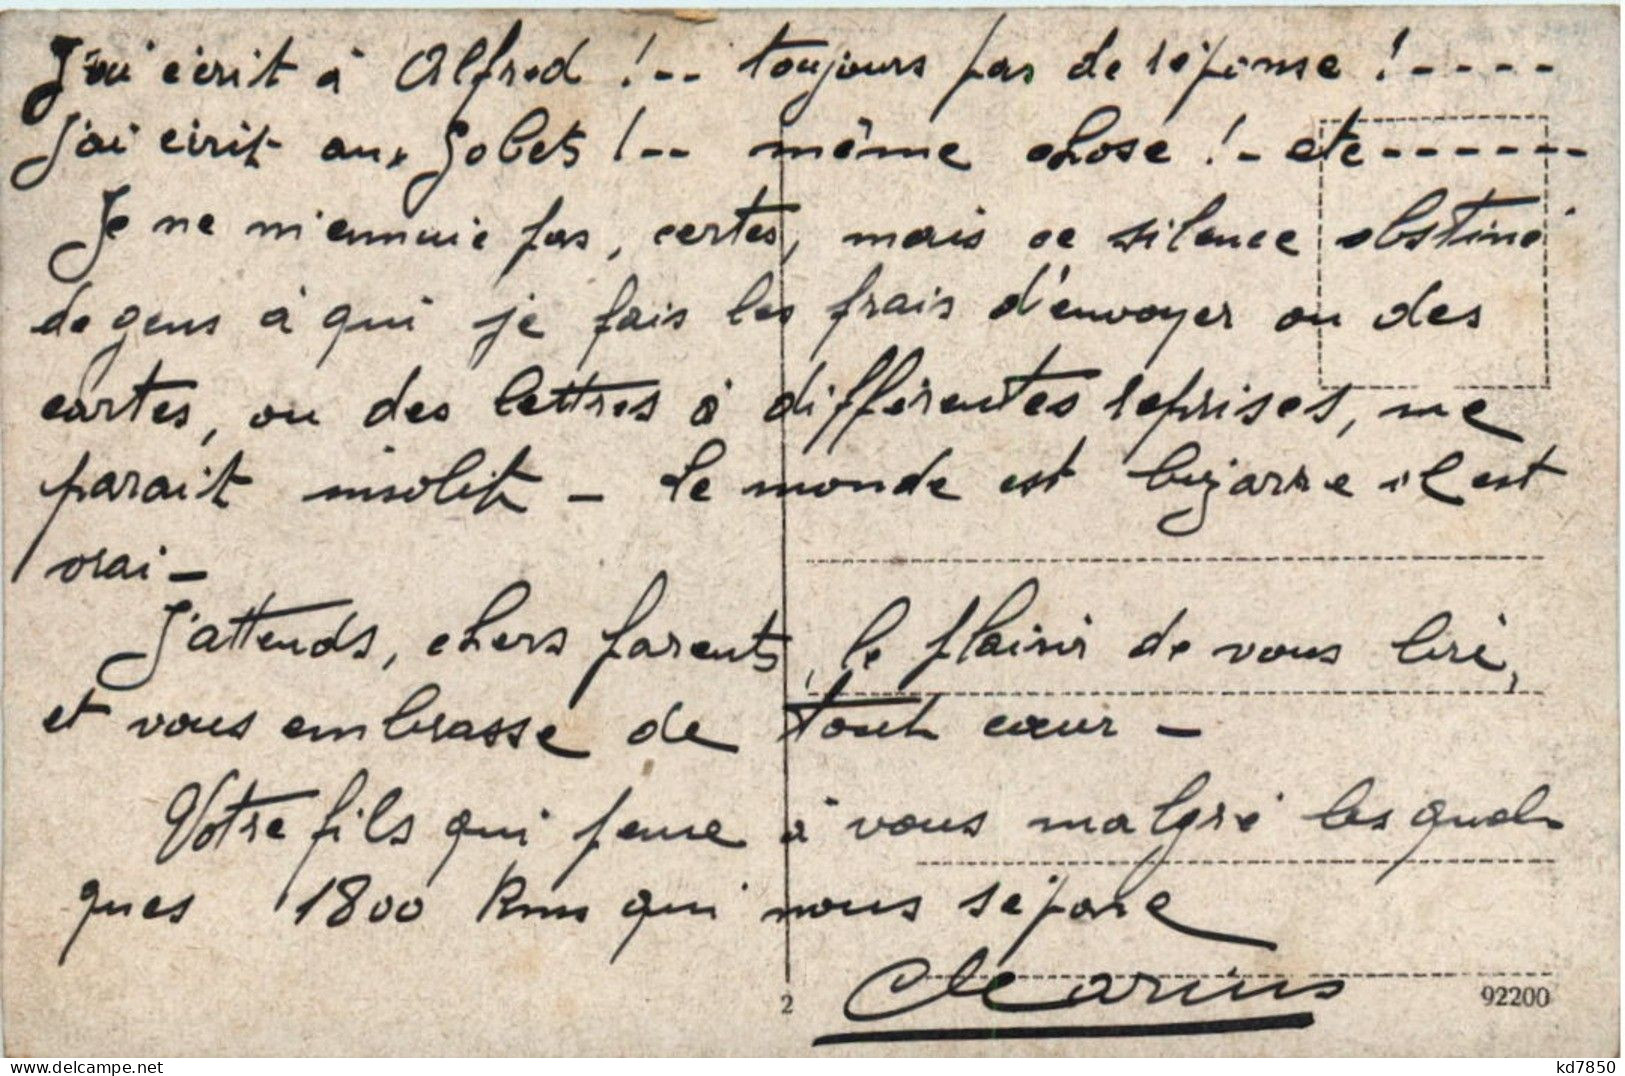 J'ai écrit à Alfred !-- toujours pas de réponse !----
J'ai écrit aux Gobets !-- même chose !- etc------
Je ne m'ennuie pas, certes, mais ce silence obstiné
de gens à qui je fais les frais d'envoyer ou des
cartes, ou des lettres à différentes reprises, me
parait insolite - Le monde est bizarre il est
vrai -
J'attends, chers parents, le plaisir de vous lire,
et vous embrasse de tout cœur -
Votre fils qui pense à vous malgré les quel-
ques 1800 Kms qui nous sépare
Marius
2
92200
kd7850